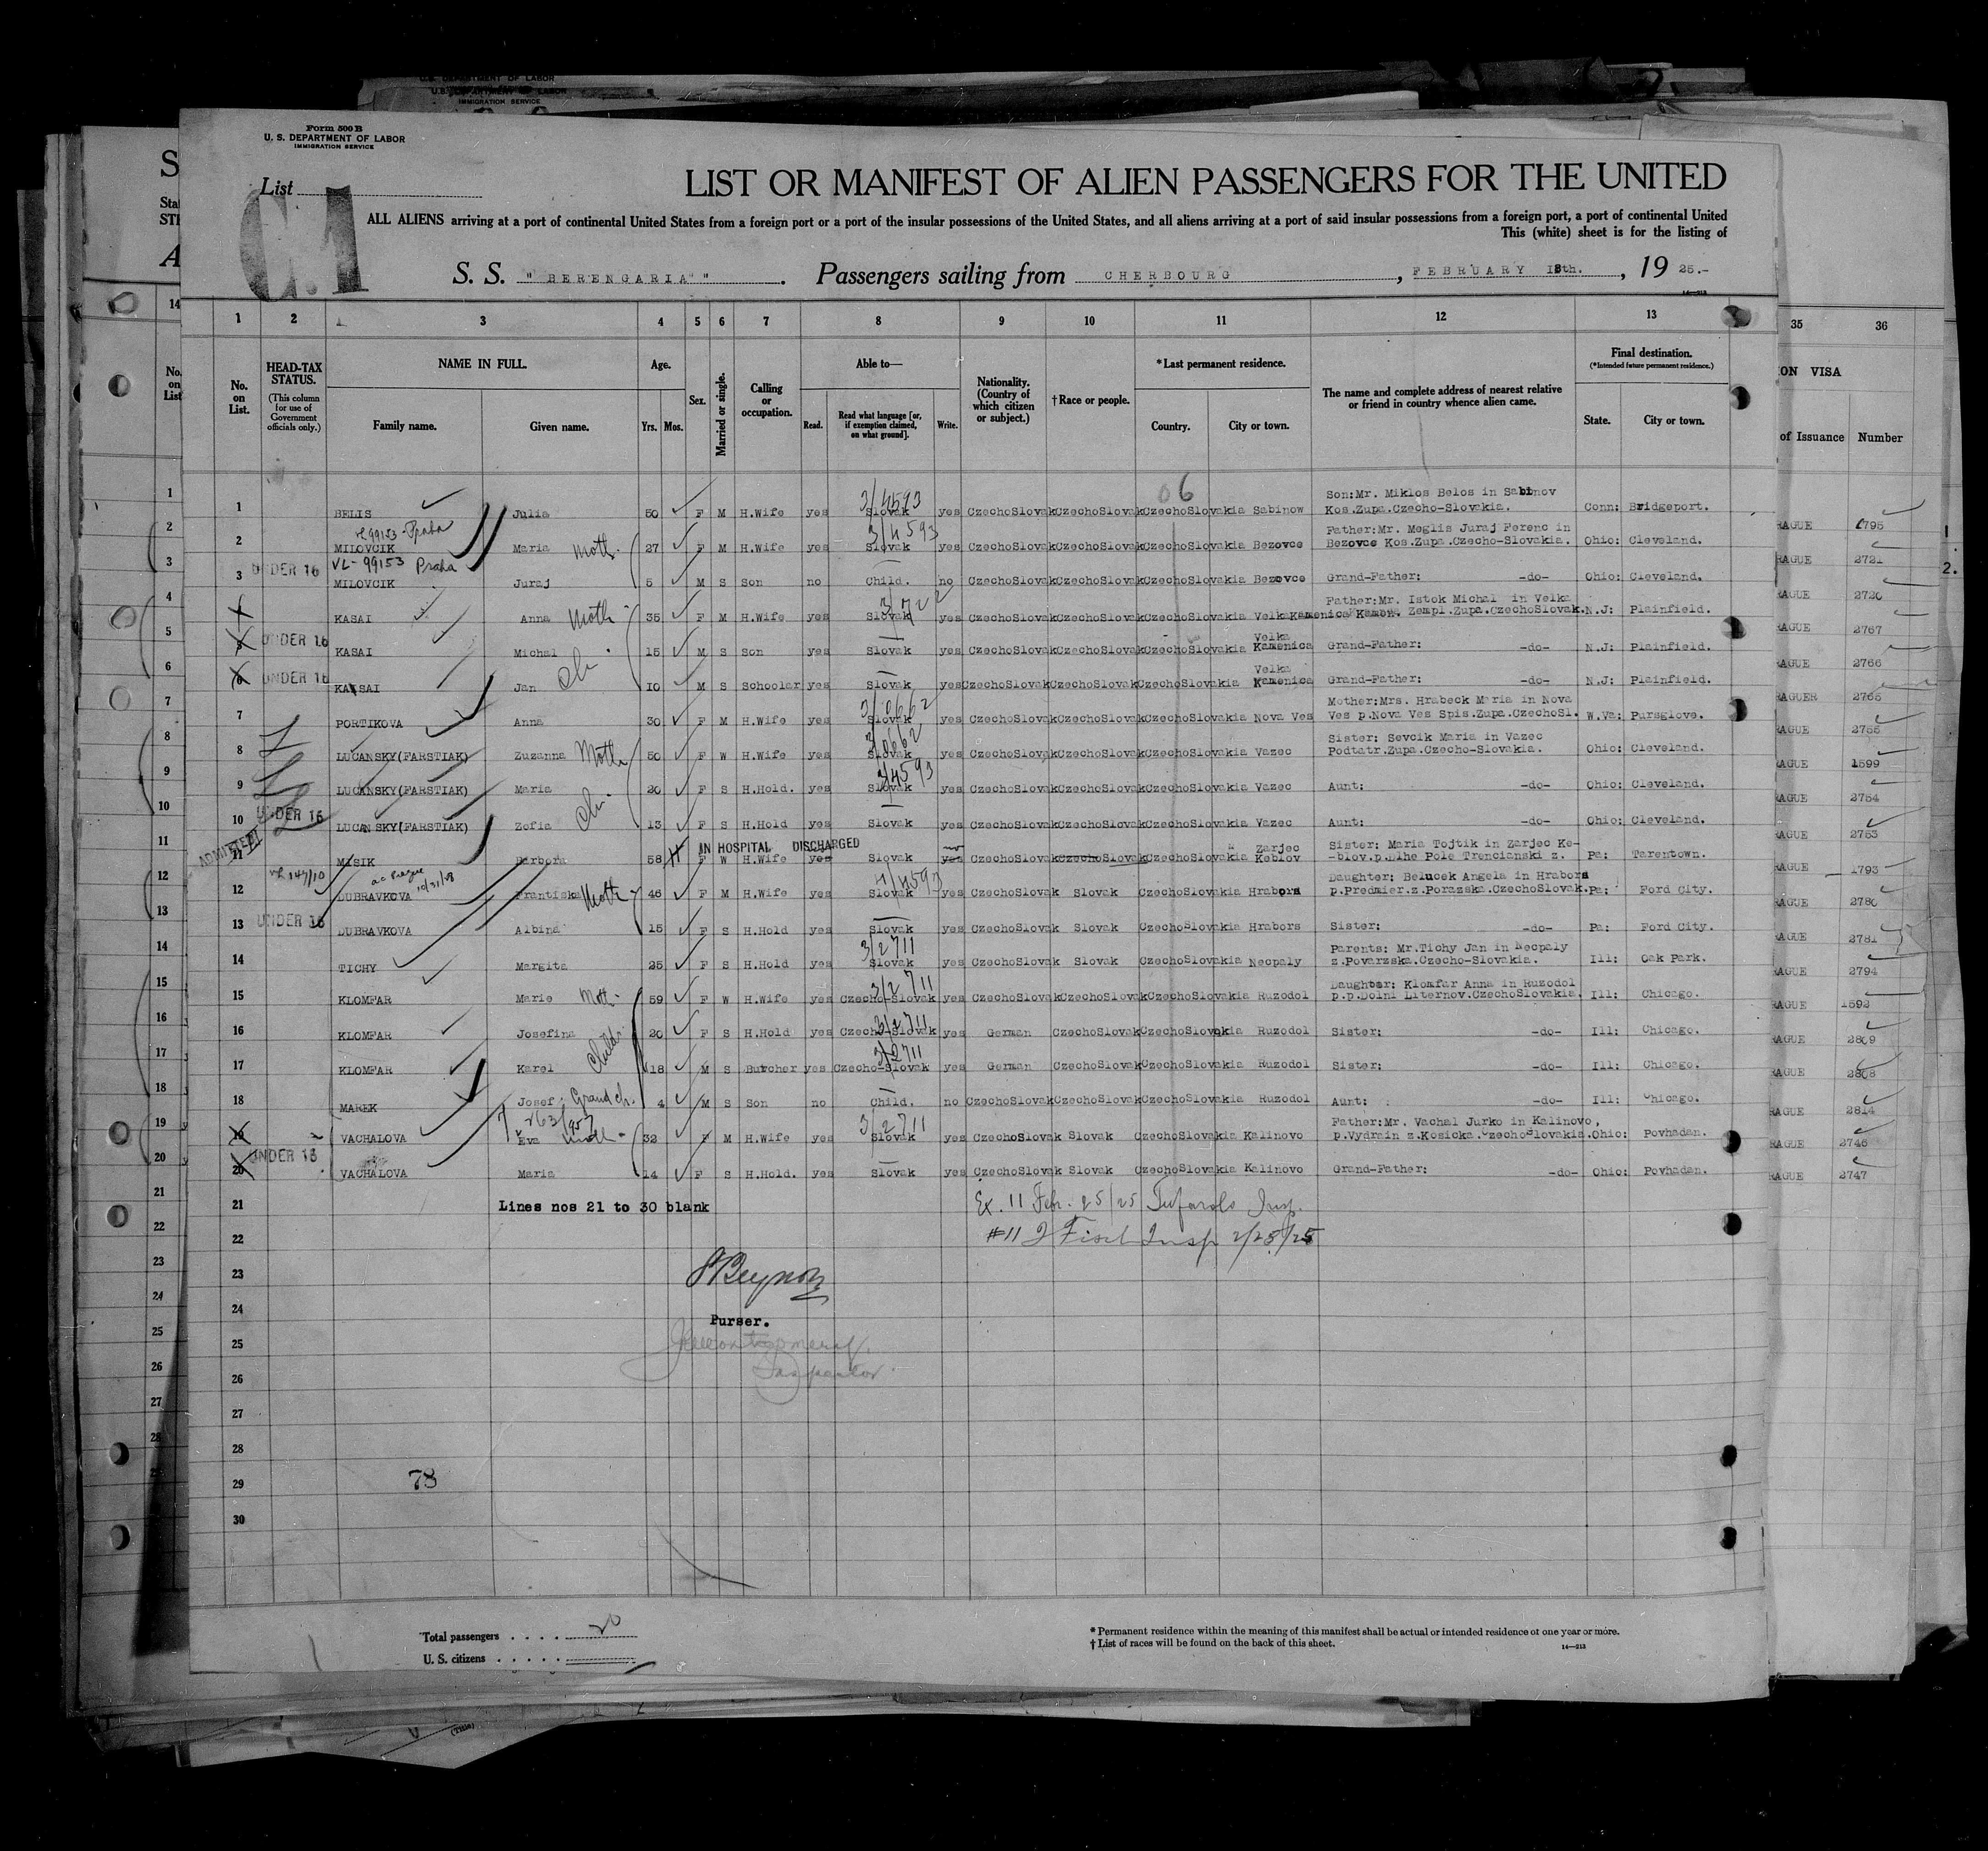 U.S. DEPARTMENT OF LABOR
IMMIGRATION SERVICE
Form 500 B
U. S. DEPARTMENT OF LABOR
IMMIGRATION SERVICE
List
C.1
LIST OR MANIFEST OF ALIEN PASSENGERS FOR THE UNITED
ALL ALIENS arriving at a port of continental United States from a foreign port or a port of the insular possessions of the United States, and all aliens arriving at a port of said insular possessions from a foreign port, a port of continental United
This (white) sheet is for the listing of
S. S. "BERENGARIA" Passengers sailing from CHERBOURG, FEBRUARY 18th., 1925.-
14—213
1 2 3 4 5 6 7 8 9 10 11 12 13
No. on List.
HEAD-TAX STATUS.
(This column for use of Government officials only.)
NAME IN FULL.
Family name. Given name.
Age.
Yrs. Mos.
Sex.
Married or single.
Calling or occupation.
Able to—
Read. Read what language [or, if exemption claimed, on what ground]. Write.
Nationality. (Country of which citizen or subject.)
†Race or people.
*Last permanent residence.
Country. City or town.
The name and complete address of nearest relative or friend in country whence alien came.
Final destination.
(*Intended future permanent residence.)
State. City or town.
35 36
ON VISA
of Issuance Number
06
3/4593 Son:Mr. Miklos Belos in Sabinov
1 BELIS Julia 50 F M H.Wife yes Slovak yes CzechoSlovak CzechoSlovak CzechoSlovakia Sabinow Kos.Zupa.Czecho-Slovakia. Conn: Bridgeport. RAGUE
99153 - Praha 3/4593 Father:Mr. Meglis Juraj Ferenc in
2 MILOVCIK Maria Moth. 27 F M H.Wife yes Slovak yes CzechoSlovak CzechoSlovak CzechoSlovakia Bezovce Bezovce Kos.Zupa.Czecho-Slovakia. Ohio: Cleveland. RAGUE 2721
UNDER 16 VL - 99153 Praha
3 MILOVCIK Juraj 5 M S Son no Child. no CzechoSlovak CzechoSlovak CzechoSlovakia Bezovce Grand-Father: -do- Ohio: Cleveland. RAGUE 2720
Father:Mr. Istok Michal in Velka
KASAI Anna Moth 35 F M H.Wife yes Slovak yes CzechoSlovak CzechoSlovak CzechoSlovakia Velka Kamenica Zempl.Zupa.CzechoSlovak. N.J: Plainfield. RAGUE 2767
UNDER 16 Velka
KASAI Michal 15 M S Son yes Slovak yes CzechoSlovak CzechoSlovak CzechoSlovakia Kamenica Grand-Father: -do- N.J: Plainfield. RAGUE 2766
UNDER 16 Velka
KASAI Jan Ch. 10 M S Schoolar yes Slovak yes CzechoSlovak CzechoSlovak CzechoSlovakia Kamenica Grand-Father: -do- N.J: Plainfield. RAGUER 2765
3/0662 Mother:Mrs. Hrabeck Maria in Nova
7 PORTIKOVA Anna 30 F M H.Wife yes Slovak yes CzechoSlovak CzechoSlovak CzechoSlovakia Nova Ves Ves p.Nova Ves Spis.Zupa.CzechoSl. W.Va: Pursglove. RAGUE 2755
3/0662 Sister: Sevcik Maria in Vazec
8 LUCANSKY(FARSTIAK) Zuzanna Moth 50 F W H.Wife yes Slovak yes CzechoSlovak CzechoSlovak CzechoSlovakia Vazec Podtatr.Zupa.Czecho-Slovakia. Ohio: Cleveland. RAGUE 1599
3/4593
9 LUCANSKY(FARSTIAK) Maria 20 F S H.Hold. yes Slovak yes CzechoSlovak CzechoSlovak CzechoSlovakia Vazec Aunt: -do- Ohio: Cleveland. RAGUE 2754
UNDER 16
10 LUCANSKY(FARSTIAK) Zofia Ch. 13 F S H.Hold yes Slovak yes CzechoSlovak CzechoSlovak CzechoSlovakia Vazec Aunt: -do- Ohio: Cleveland. RAGUE 2753
ADMITTED IN HOSPITAL DISCHARGED no Zarjec Sister: Maria Tojtik in Zarjec Ke-
11 MISIK Barbora 58 F W H.Wife yes Slovak yes CzechoSlovak CzechoSlovak CzechoSlovakia Keblov -blov.p.Dlhe Pole Trencianski z. Pa: Tarentown. RAGUE 1793
147/10 10/31/28 Daughter: Belucek Angela in Hrabors
12 DUBRAVKOVA Frantiska Moth 46 F M H.Wife yes Slovak yes CzechoSlovak Slovak CzechoSlovakia Hrabors p.Predmier.z.Porazska.CzechoSlovak. Pa: Ford City. RAGUE 2780
UNDER 16
13 DUBRAVKOVA Albina 15 F S H.Hold yes Slovak yes CzechoSlovak Slovak CzechoSlovakia Hrabors Sister: -do- Pa: Ford City. RAGUE 2781
3/2711 Parents: Mr.Tichy Jan in Necpaly
14 TICHY Margita 25 F S H.Hold yes Slovak yes CzechoSlovak Slovak CzechoSlovakia Necpaly z.Povarzska.Czecho-Slovakia. Ill: Oak Park. RAGUE 2794
3/2711 Daughter: Klomfar Anna in Ruzodol
15 KLOMFAR Marie Moth- 59 F W H.Wife yes Czecho-Slovak yes CzechoSlovak CzechoSlovak CzechoSlovakia Ruzodol p.p.Dolni Liternov.CzechoSlovakia. Ill: Chicago. RAGUE 1592
3/2711
16 KLOMFAR Josefina 20 F S H.Hold yes Czecho-Slovak yes German CzechoSlovak CzechoSlovakia Ruzodol Sister: -do- Ill: Chicago. RAGUE 2809
3/2711
17 KLOMFAR Karel Childr 18 M S Butcher yes Czecho-Slovak yes German CzechoSlovak CzechoSlovakia Ruzodol Sister: -do- Ill: Chicago. RAGUE 2808
18 MAREK Josef Grand ch. 4 M S Son no Child. no CzechoSlovak CzechoSlovak CzechoSlovakia Ruzodol Aunt: -do- Ill: Chicago. RAGUE 2814
3/2711 Father:Mr. Vachal Jurko in Kalinovo,
19 VACHALOVA Eva Moth- 32 F M H.Wife yes Slovak yes CzechoSlovak Slovak CzechoSlovakia Kalinovo p.Vydrain z.Kosicka.CzechoSlovakia. Ohio: Povhadan. RAGUE 2746
UNDER 16
20 VACHALOVA Maria 14 F S H.Hold. yes Slovak yes CzechoSlovak Slovak CzechoSlovakia Kalinovo Grand-Father: -do- Ohio: Povhadan. RAGUE 2747
21 Lines nos 21 to 30 blank Ex. 11 Febr. 25/25 Insp.
22 #11 J Fisch Insp 2/25/25
23
24 Purser.
25
26 Inspector
27
28
29 78
30
Total passengers . . . . 20
U. S. citizens . . . . .
* Permanent residence within the meaning of this manifest shall be actual or intended residence of one year or more.
† List of races will be found on the back of this sheet.
14—213
(Title)